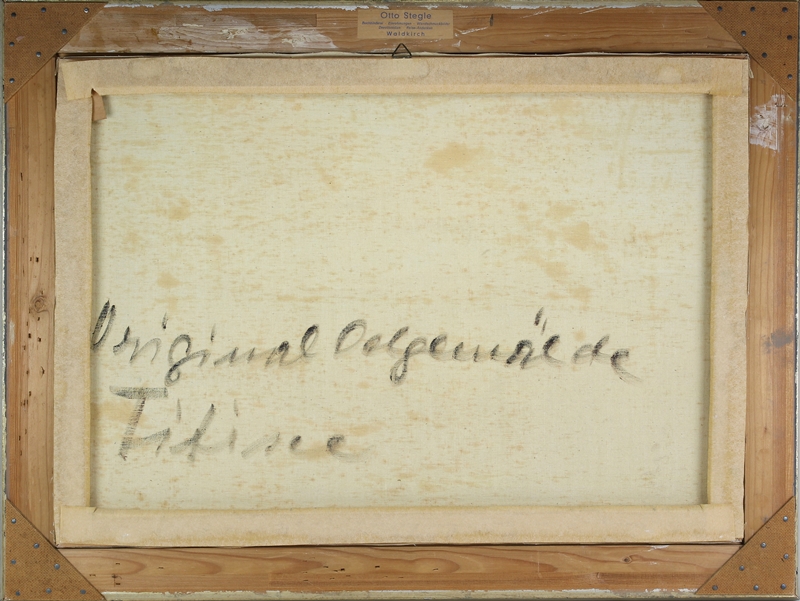 Otto Stegle
Waldkirch
Original Oelgemälde
Titisee